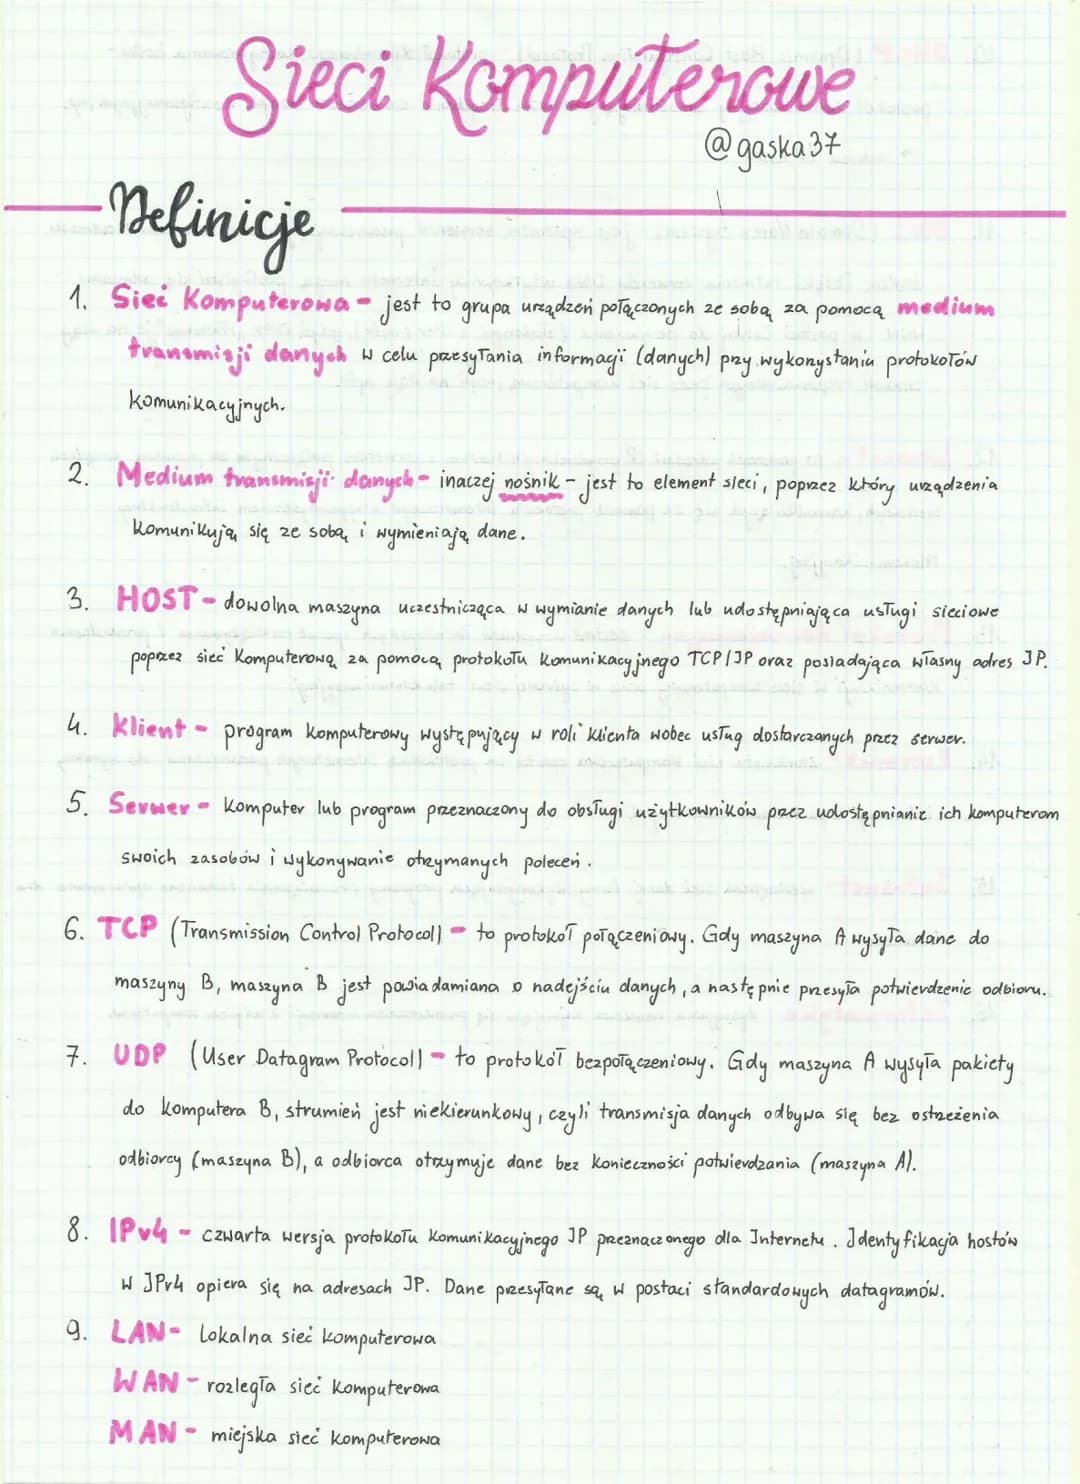 Sieci Komputerowe
@gaska37
Definicje
1. Sieć Komputerowa - jest to grupa urządzeń połączonych ze sobą za pomocą medium
transmisji danych w celu przesyłania informacji (danych) przy wykorzystaniu protokołów
komunikacyjnych.
2. Medium transmisji danych - inaczej nośnik - jest to element sieci, poprzez który urządzenia
komunikują się ze sobą i wymieniają dane.
3. HOST - dowolna maszyna uczestnicząca w wymianie danych lub udostępniająca usługi sieciowe
poprzez sieć komputerową za pomocą protokołu komunikacyjnego TCP/IP oraz posiadająca własny adres IP.
4. Klient - program komputerowy występujący w roli klienta wobec usług dostarczanych przez serwer.
5. Serwer - Komputer lub program przeznaczony do obsługi użytkowników przez udostępnianie ich komputerom
swoich zasobów i wykonywanie otrzymanych poleceń.
6. TCP (Transmission Control Protocol) - to protokoł połączeniowy. Gdy maszyna A wysyła dane do
maszyny B, maszyna B jest powiadamiana o nadejściu danych, a następnie przesyła potwierdzenie odbioru.
7. UDP (User Datagram Protocol) - to protokół bezpołączeniowy. Gdy maszyna A wysyła pakiety
do komputera B, strumień jest niekierunkowy, czyli transmisja danych odbywa się bez ostrzeżenia
odbiorcy (maszyna B), a odbiorca otrzymuje dane bez konieczności potwierdzania (maszyna A).
8. IPv4 - czwarta wersja protokołu komunikacyjnego IP przeznaczonego dla Internetu. Identyfikacja hostów
w IPv4 opiera się na adresach IP. Dane przesyłane są w postaci standardowych datagramów.
9. LAN - Lokalna sieć komputerowa
WAN - rozległa sieć komputerowa
MAN - miejska sieć komputerowa